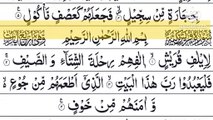 بِحِجَارَةٍ مِّنْ سِجِّيْلٍ ۙ فَجَعَلَهُمْ كَعَصْفٍ مَّاْكُوْلٍ
بِسْمِ اللّٰهِ الرَّحْمٰنِ الرَّحِيْمِ
لِاِيْلٰفِ قُرَيْشٍ ۙ اٖلٰفِهِمْ رِحْلَةَ الشِّتَآءِ وَ الصَّيْفِ ۚ
فَلْيَعْبُدُوْا رَبَّ هٰذَا الْبَيْتِ ۙ الَّذِيْٓ اَطْعَمَهُمْ مِّنْ جُوْعٍ ۙ
وَّ اٰمَنَهُمْ مِّنْ خَوْفٍ